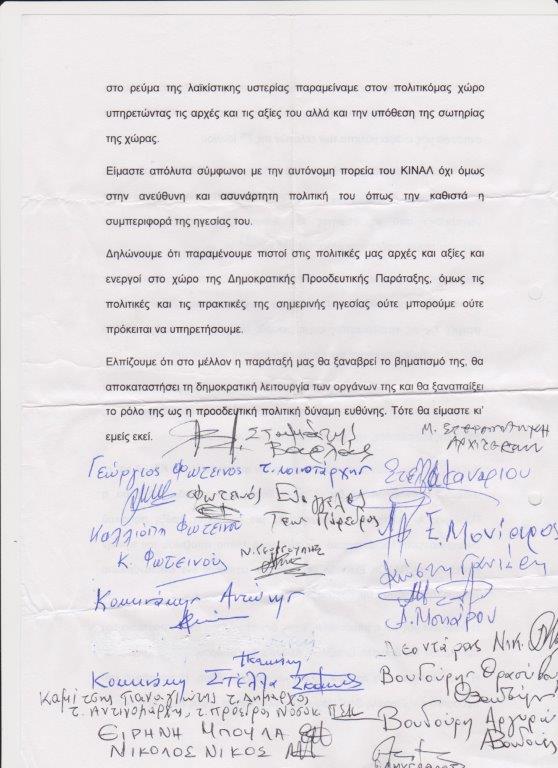 στο ρεύμα της λαϊκίστικης υστερίας παραμείναμε στον πολιτικόμας χώρο
υπηρετώντας τις αρχές και τις αξίες του αλλά και την υπόθεση της σωτηρίας
της χώρας.
Είμαστε απόλυτα σύμφωνοι με την αυτόνομη πορεία του ΚΙΝΑΛ όχι όμως
στην ανεύθυνη και ασυνάρτητη πολιτική του όπως την καθιστά η
συμπεριφορά της ηγεσίας του.
Δηλώνουμε ότι παραμένουμε πιστοί στις πολιτικές μας αρχές και αξίες και
ενεργοί στο χώρο της Δημοκρατικής Προοδευτικής Παράταξης, όμως τις
πολιτικές και τις πρακτικές της σημερινής ηγεσίας ούτε μπορούμε ούτε
πρόκειται να υπηρετήσουμε.
Ελπίζουμε ότι στο μέλλον η παράταξή μας θα ξαναβρεί το βηματισμό της, θα
αποκαταστήσει τη δημοκρατική λειτουργία των οργάνων της και θα ξαναπαίξει
το ρόλο της ως η προοδευτική πολιτική δύναμη ευθύνης. Τότε θα είμαστε κι'
εμείς εκεί.
Σταμάτης
Βαρλάς
Γεώργιος Φωτεινός τ.
Φωτεινός
Καλλιόπη Φωτεινού
Κ. Φωτεινός
Μονίαρος
Κοκκινάκης Αντώνης
Λεοντάρας Νικ.
Κοκκινάκη Στέλλα
Βουδούρης
Καμίτσης Παναγιώτης τ. Δήμαρχος
τ. Αντινομάρχης, τ. πρόεδρος
Βουδούρη Αργυρώ
ΕΙΡΗΝΗ ΜΠΟΥΛΑ
ΝΙΚΟΛΟΣ ΝΙΚΟΣ